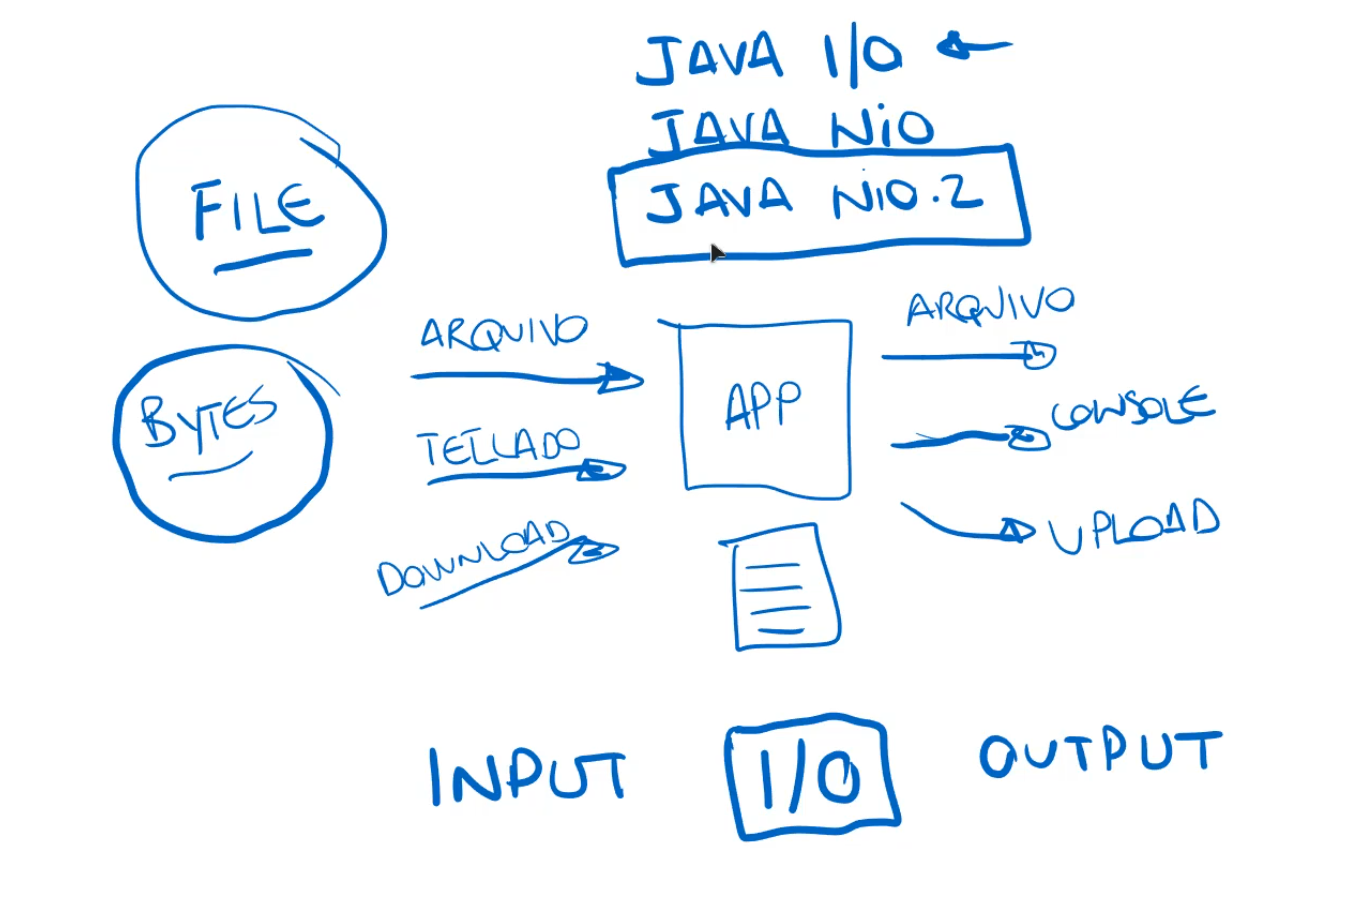 JAVA I/O
JAVA NiO
JAVA NiO.2
FILE
BYTES
ARQUIVO
TECLADO
DOWNLOAD
APP
ARQUIVO
CONSOLE
UPLOAD
INPUT
I/O
OUTPUT